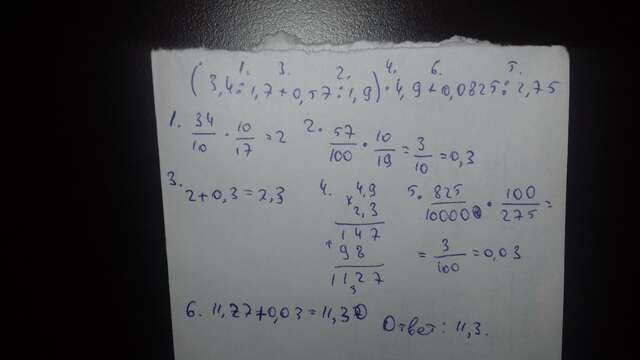 1. 3. 2. 4. 6. 5.
(3,4:1,7+0,57:1,9)·4,9+0,0825:2,75
1. 34/10 · 10/17 = 2
2. 57/100 · 10/19 = 3/10 = 0,3
3. 2+0,3=2,3
4. 4,9
× 2,3
147
+ 98
1127
5. 825/10000 · 100/275 =
= 3/100 = 0,03
6. 11,27+0,03=11,30
Ответ: 11,3.